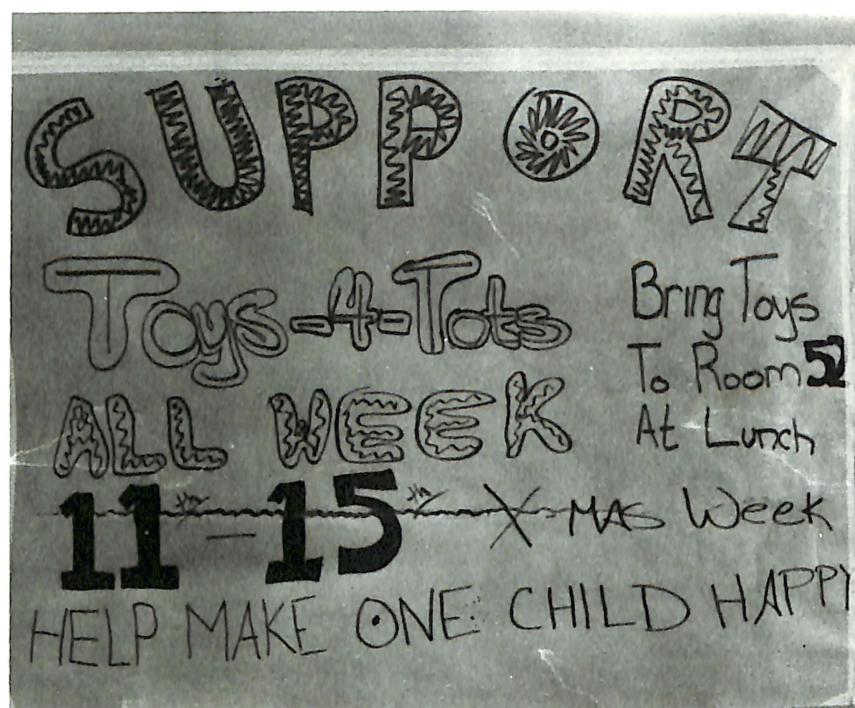 SUPPORT
Toys-4-Tots
ALL WEEK
Bring Toys
To Room 52
At Lunch
11th - 15th X-MAS Week
HELP MAKE ONE CHILD HAPPY